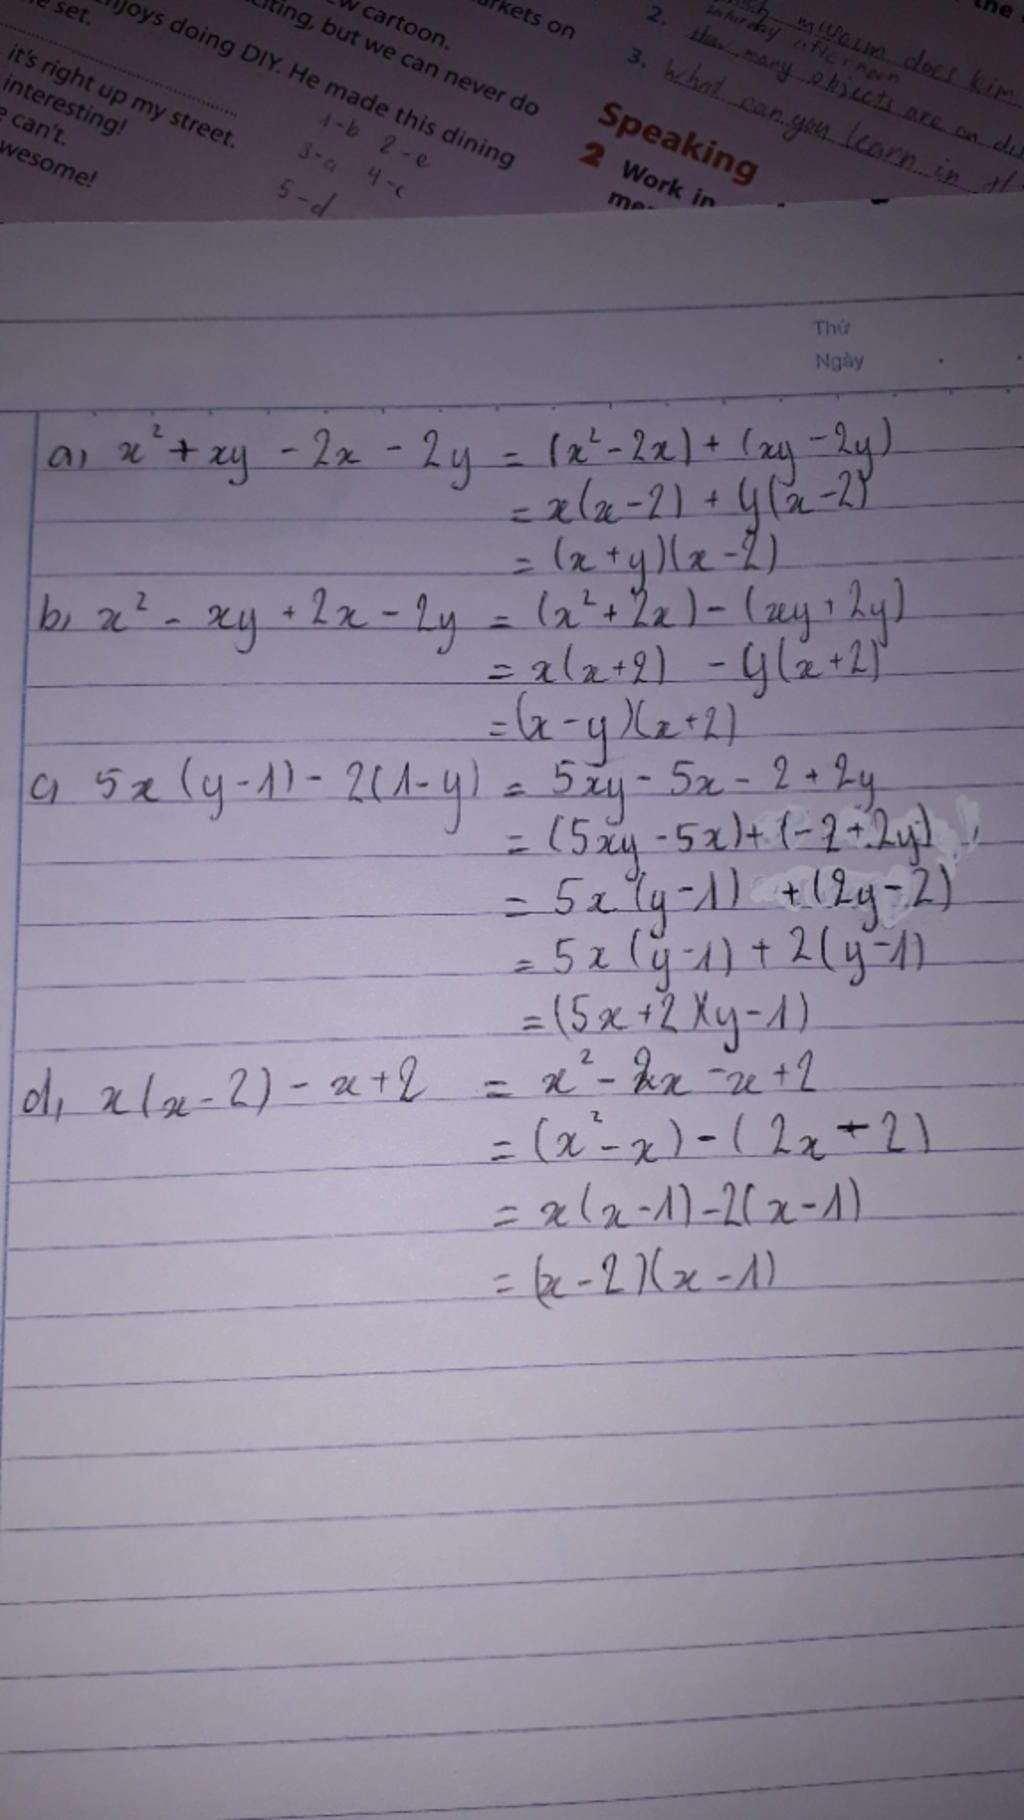 e set.
njoys doing DIY. He made this dining
citing, but we can never do
w cartoon.
rkets on
it's right up my street.
interesting!
can't.
wesome!
1-b 2-e
3-a 4-c
5-d
Speaking
2 Work in
the
2.
Saturday afternoon
How many objects are on
3. What can you learn in
does kim
Thứ
Ngày
a, x² + xy - 2x - 2y = (x² - 2x) + (xy - 2y)
= x(x - 2) + y(x - 2)
= (x + y)(x - 2)
b, x² - xy + 2x - 2y = (x² + 2x) - (xy + 2y)
= x(x + 2) - y(x + 2)
= (x - y)(x + 2)
c, 5x (y - 1) - 2(1 - y) = 5xy - 5x - 2 + 2y
= (5xy - 5x) + (-2 + 2y)
= 5x (y - 1) + (2y - 2)
= 5x (y - 1) + 2(y - 1)
= (5x + 2)(y - 1)
d, x(x - 2) - x + 2 = x² - 2x - x + 2
= (x² - x) - (2x - 2)
= x(x - 1) - 2(x - 1)
= (x - 2)(x - 1)